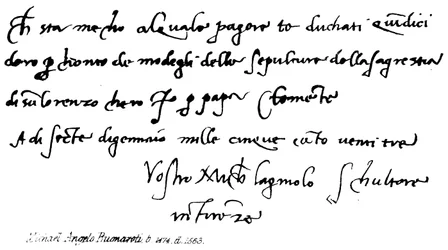 sta mecho al quale pagore te duchati quindici
doro p chonto de modegli delle sepulture della sagrestia
di sā lorenzo fo p papa Clemēte
A di secte di gennaio mille cinque cēto venti tre
Vostro lagniolo schultore
in Firenze
Michael Angelo Buonaroti. b. 1474. d. 1563.